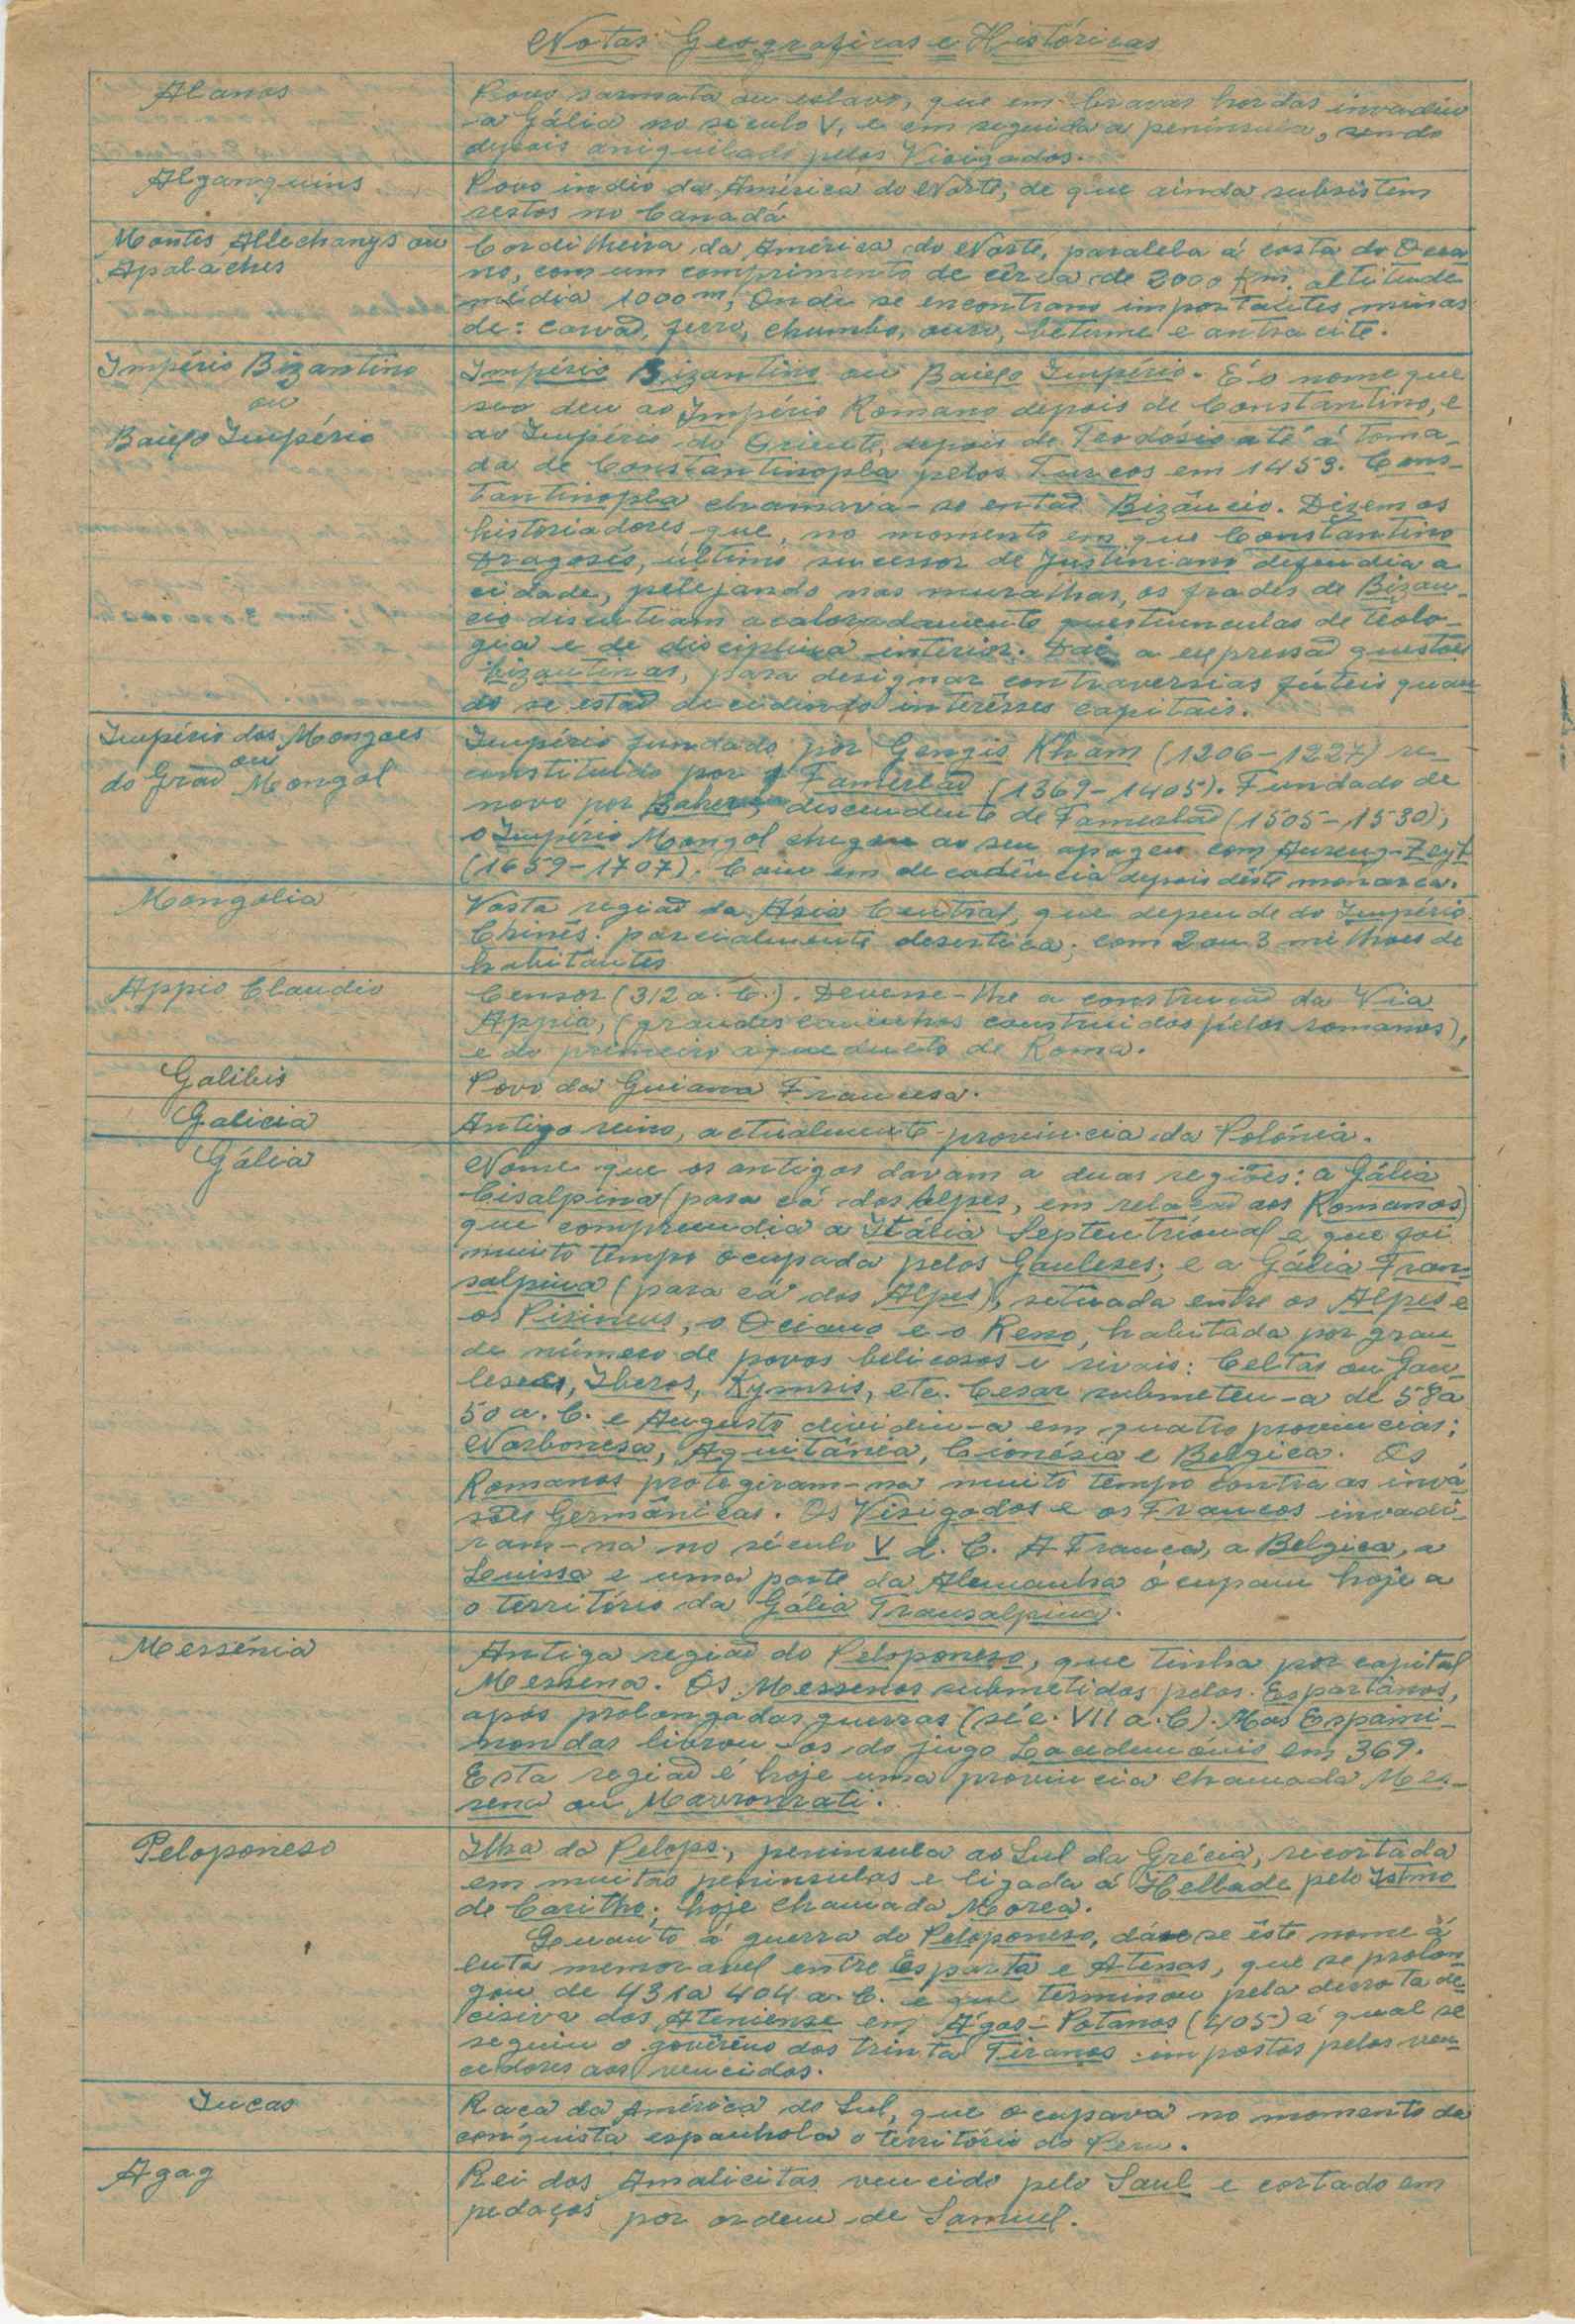 Notas Geograficas e Históricas
Alanos
Povo sarmata ou eslavo, que em bravas hordas invadiu
a Gália no século V, e em seguida a península, sendo
depois aniquilado pelos Visigodos.
Algonquins
Povo indio da América do Norte, de que ainda subsistem
restos no Canadá
Montes Alleghanys ou
Apalaches
Cordilheira da América do Norte, paralela á costa do Ocea
no, com um comprimento de cêrca de 2000 Km. altitude
média 1000m; Onde se encontram importantes minas
de: carvão, ferro, chumbo, ouro, betume e antracite.
Império Bizantino
ou
Baixo Império
Império Bizantino ou Baixo Império. É o nome que
se deu ao Império Romano depois de Constantino, e
ao Império do Oriente, depois de Teodósio até á toma-
da de Constantinopla pelos Turcos em 1453. Cons-
tantinopla chamava-se então Bizâncio. Dizem os
historiadores que, no momento em que Constantino
Dragosés, último sucessor de Justiniano defendia a
cidade, pelejando nas muralhas, os frades de Bizan-
cio discutiam acaloradamente questiunculas de teolo-
gia e de disciplina interior. Daí a expressão questões
bizantinas, para designar contraversias fúteis quan
do se estão decidindo interêsses capitais.
Império dos Mongoes
ou
do Grão Mongol
Império fundado por Gengis Kham (1206-1227) re-
constituido por Tamerlão (1369-1405). Fundado de
novo por Baber, descendente de Tamerlão (1505-1530);
o Império Mongol chegou ao seu apogeu com Aureng-Zeyb
(1659-1707). Caiu em decadência depois dêste monarca.
Mongolia
Vasta região da Ásia Central, que depende do Império
Chinês: parcialmente desertica; com 2 ou 3 milhoes de
habitantes
Appio Claudio
Censor (312 a. C.). Devesse-lhe a construção da Via
Appia, (grandes caminhos construidos pelos romanos),
e do primeiro aqueducto de Roma.
Galibis
Povo da Guiana Francesa.
Galicia
Antigo reino, actualmente provincia da Polónia.
Gália
Nome que os antigos davam a duas regiões: a Gália
Cisalpina (para cá dos Alpes, em relação aos Romanos)
que compreendia a Itália Septentrional e que foi
muito tempo ocupada pelos Gauleses; e a Gália Tran-
salpina (para cá dos Alpes), situada entre os Alpes e
os Pirineus, o Oceano e o Reno, habitada por gran-
de número de povos belicosos e rivais: Celtas ou Gau-
leses, Iberos, Kymris, etc. Cesar submeteu-a de 58 a
50 a. C. e Augusto dividiu-a em quatro provincias:
Narbonesa, Aquitânia, Lionésia e Belgica. Os
Romanos protegiram-na muito tempo contra as inva
sões Germânicas. Os Visigodos e os Francos invadi-
ram-na no século V d. C. A França, a Belgica, a
Suissa e uma parte da Alemanha ocupam hoje a
o território da Gália Transalpina.
Messénia
Antiga região do Peloponeso, que tinha por capital
Messena. Os Messenos submetidos pelos Espartanos,
após prolongadas guerras (séc. VII a. C). Mas Epami-
nondas livrou-os do jugo Lacedemónio em 369.
Esta região é hoje uma provincia chamada Mes-
sena ou Mavromati.
Peloponeso
Ilha da Pelops., península ao Sul da Grécia, recortada
em muitas peninsulas e ligada á Hellade pelo Istmo
de Corintho; hoje chamada Morea.
Quanto á guerra do Peloponeso, dá-se êste nome á
luta memoravel entre Esparta e Atenas, que se prolon-
gou de 431 a 404 a. C. e que terminou pela derrota de-
cisiva dos Ateniense em Ágos-Potamos (405) á qual se
seguiu o govêrno dos trinta Tiranos impostos pelos ven-
cedores aos vencidos.
Incas
Raça da América do Sul, que ocupava no momento da
conquista espanhola o território do Peru.
Agag
Rei dos Amalicitas vencido pelo Saul e cortado em
pedaços por ordem de Samuel.